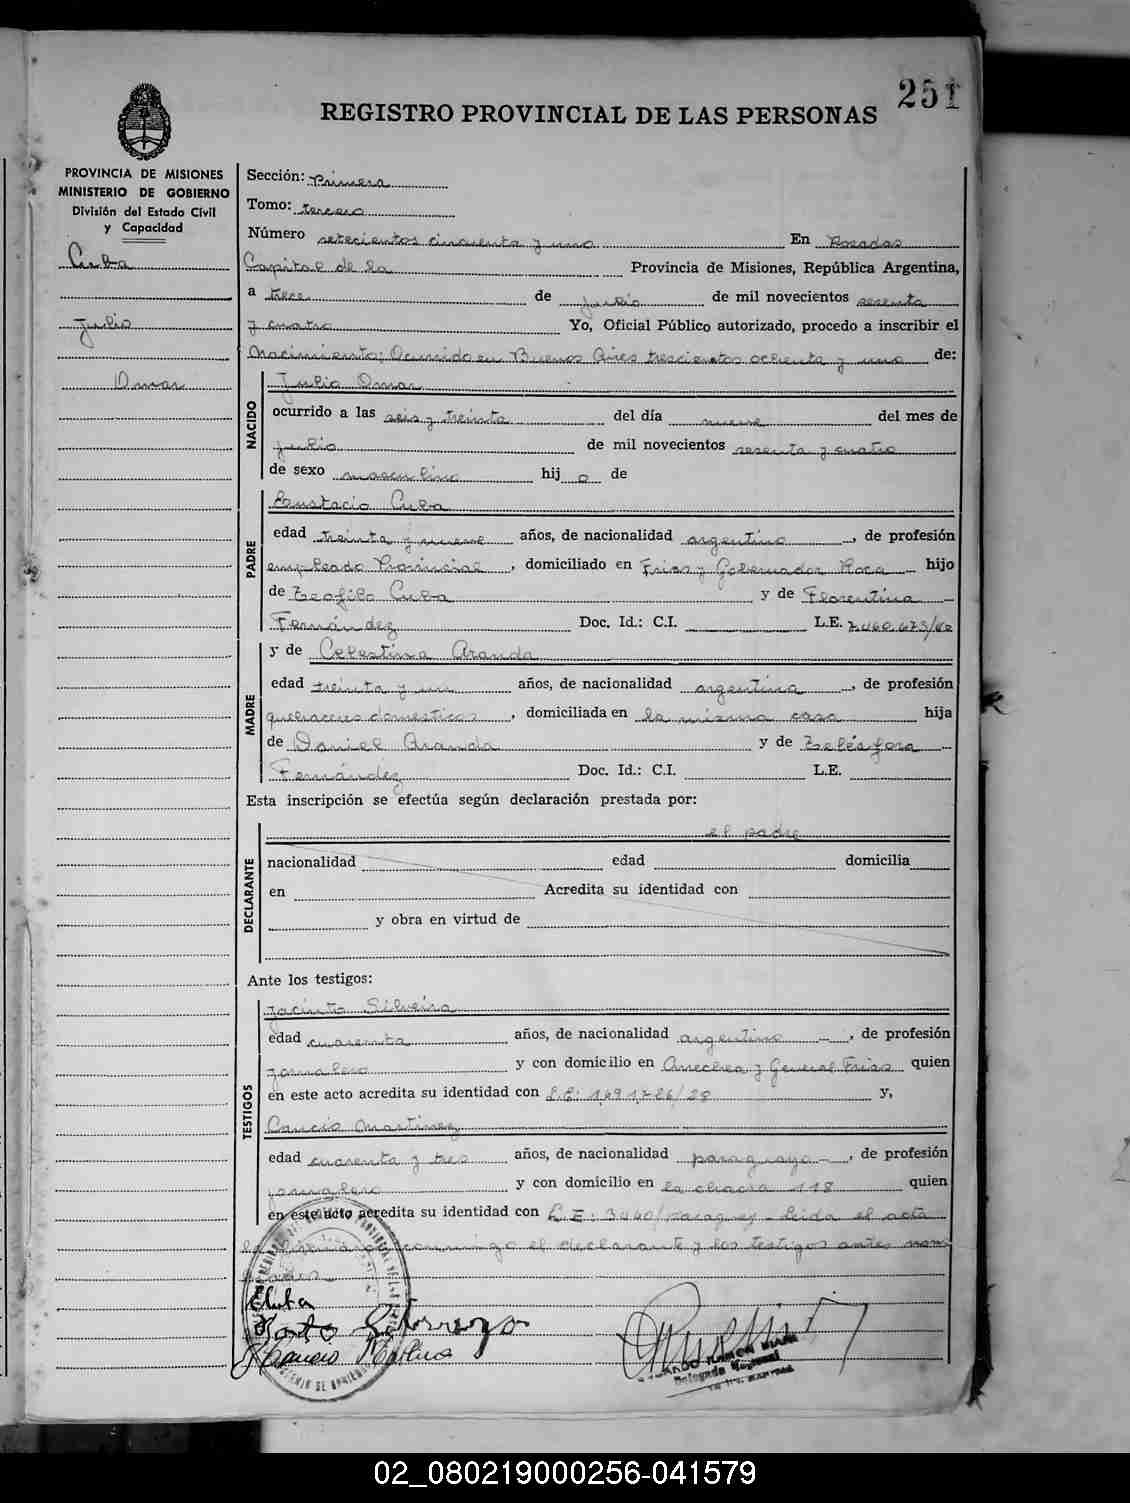 251
REGISTRO PROVINCIAL DE LAS PERSONAS
PROVINCIA DE MISIONES
MINISTERIO DE GOBIERNO
División del Estado Civil
y Capacidad
Cuba
Julio
Omar
Sección: Primera
Tomo: tercero
Número setecientos cincuenta y uno En Posadas
Capital de la Provincia de Misiones, República Argentina,
a trece de Julio de mil novecientos sesenta
y cuatro Yo, Oficial Público autorizado, procedo a inscribir el
Nacimiento; Ocurrido en Buenos Aires trescientos ochenta y uno de:
NACIDO
Julio Omar
ocurrido a las seis y treinta del día nueve del mes de
julio de mil novecientos sesenta y cuatro
de sexo masculino hij o de
PADRE
Eustacio Cuba
edad treinta y nueve años, de nacionalidad argentino, de profesión
empleado Provincial, domiciliado en Frias y Gobernador Roca hijo
de Teofilo Cuba y de Florentina
Fernández Doc. Id.: C.I. L.E.
MADRE
y de Celestina Aranda
edad treinta y un años, de nacionalidad argentina, de profesión
quehaceres domesticos, domiciliada en la misma casa hija
de Daniel Aranda y de Telésfora
Fernández Doc. Id.: C.I. L.E.
Esta inscripción se efectúa según declaración prestada por:
DECLARANTE
el padre
nacionalidad edad domicilia
en Acredita su identidad con
y obra en virtud de
Ante los testigos:
TESTIGOS
Jacinto Silveira
edad cuarenta años, de nacionalidad argentino, de profesión
jornalero y con domicilio en y General Frias quien
en este acto acredita su identidad con L.E: y,
Cancio Martinez
edad cuarenta y tres años, de nacionalidad paraguayo, de profesión
jornalero y con domicilio en la chacra 118 quien
en este acto acredita su identidad con L.E: Leida el acta
conmigo el declarante y los testigos antes nom
brados
Delegado Regional
02_080219000256-041579